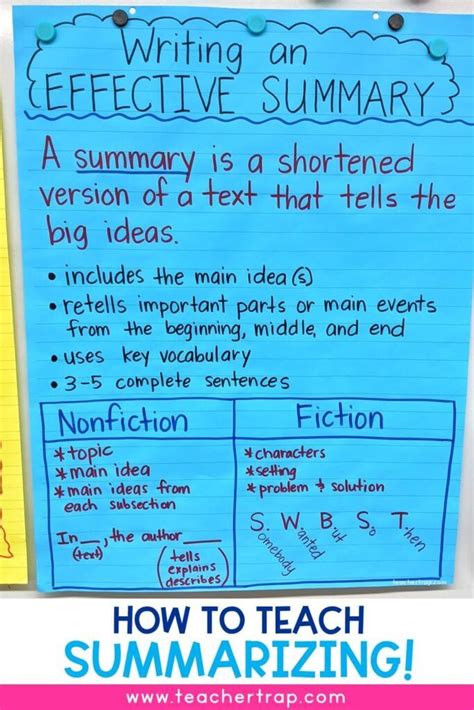 Writing an
EFFECTIVE SUMMARY
A summary is a shortened
version of a text that tells the
big ideas.
• includes the main idea(s)
• retells important parts or main events
from the beginning, middle, and end
• uses key vocabulary
• 3-5 complete sentences
Nonfiction
*topic
*main idea
*main ideas from
each subsection
In __, the author ____
(text)
(tells
explains
describes)
Fiction
*characters
*setting
*problem & solution
S. W. B. S. T.
Somebody Wanted But So Then
teachertrap.com
HOW TO TEACH
SUMMARIZING!
www.teachertrap.com